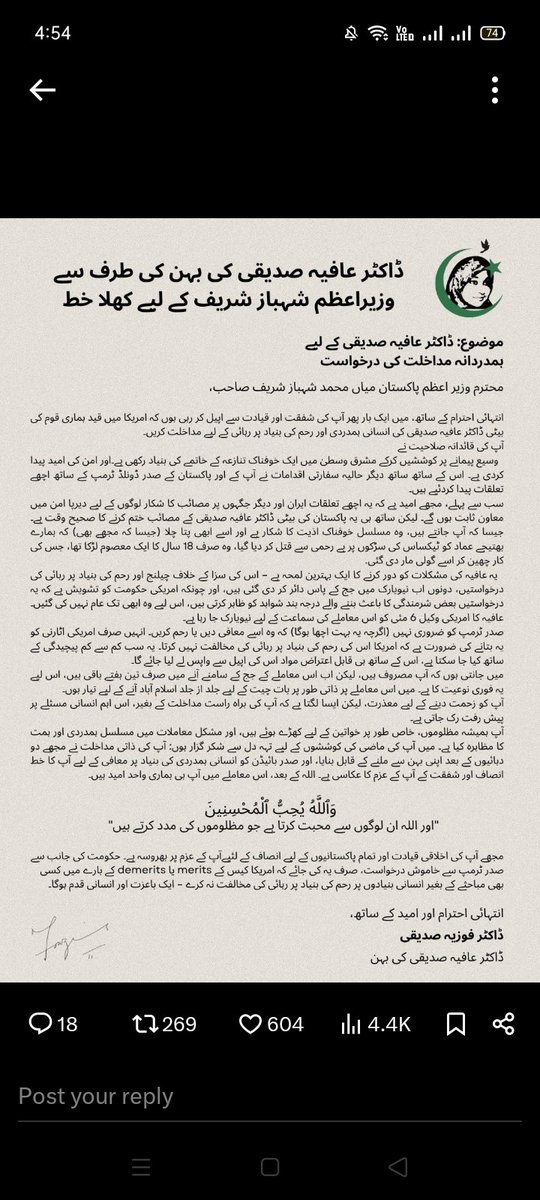 4:54
Vo LTE
74
ڈاکٹر عافیہ صدیقی کی بہن کی طرف سے
وزیراعظم شہباز شریف کے لیے کھلا خط
موضوع: ڈاکٹر عافیہ صدیقی کے لیے
ہمدردانہ مداخلت کی درخواست
محترم وزیر اعظم پاکستان میاں محمد شہباز شریف صاحب،
انتہائی احترام کے ساتھ، میں ایک بار پھر آپ کی شفقت اور قیادت سے اپیل کر رہی ہوں کہ امریکا میں قید ہماری قوم کی
بیٹی ڈاکٹر عافیہ صدیقی کی انسانی ہمدردی اور رحم کی بنیاد پر رہائی کے لیے مداخلت کریں۔
آپ کی قائدانہ صلاحیت نے
وسیع پیمانے پر کوششیں کرکے مشرق وسطیٰ میں ایک خوفناک تنازعہ کے خاتمے کی بنیاد رکھی ہے۔اور امن کی امید پیدا
کردی ہے۔ اس کے ساتھ ساتھ دیگر حالیہ سفارتی اقدامات نے آپ کے اور پاکستان کے صدر ڈونلڈ ٹرمپ کے ساتھ اچھے
تعلقات پیدا کردئیے ہیں۔
سب سے پہلے، مجھے امید ہے کہ یہ اچھے تعلقات ایران اور دیگر جگہوں پر مصائب کا شکار لوگوں کے لیے دیرپا امن میں
معاون ثابت ہوں گے۔ لیکن ساتھ ہی یہ پاکستان کی بیٹی ڈاکٹر عافیہ صدیقی کے مصائب ختم کرنے کا صحیح وقت ہے۔
جیسا کہ آپ جانتے ہیں، وہ مسلسل خوفناک اذیت کا شکار ہے اور اسے ابھی پتا چلا (جیسا کہ مجھے بھی) کہ ہمارے
بھتیجے عماد کو ٹیکساس کی سڑکوں پر بے رحمی سے قتل کر دیا گیا، وہ صرف 18 سال کا ایک معصوم لڑکا تھا، جس کی
کار چھین کر اسے گولی مار دی گئی۔
یہ عافیہ کی مشکلات کو دور کرنے کا ایک بہترین لمحہ ہے – اس کی سزا کے خلاف چیلنج اور رحم کی بنیاد پر رہائی کی
درخواستیں، دونوں اب نیویارک میں جج کے پاس دائر کر دی گئی ہیں، اور چونکہ امریکی حکومت کو تشویش ہے کہ یہ
درخواستیں بعض شرمندگی کا باعث بننے والے درجہ بند شواہد کو ظاہر کرتی ہیں، اس لیے وہ ابھی تک عام نہیں کی گئیں۔
عافیہ کا امریکی وکیل 6 مئی کو اس معاملے کی سماعت کے لیے نیویارک جا رہا ہے۔
صدر ٹرمپ کو ضروری نہیں (اگرچہ یہ بہت اچھا ہوگا) کہ وہ اسے معافی دیں یا رحم کریں۔ انہیں صرف امریکی اٹارنی کو
یہ بتانے کی ضرورت ہے کہ امریکا اس کی رحم کی بنیاد پر رہائی کی مخالفت نہیں کرتا۔ یہ سب کم سے کم پیچیدگی کے
ساتھ کیا جا سکتا ہے، اس کے ساتھ ہی قابل اعتراض مواد اس کی اپیل سے واپس لے لیا جائے گا۔
میں جانتی ہوں کہ آپ مصروف ہیں، لیکن اب اس معاملے کے جج کے سامنے آنے میں صرف تین ہفتے باقی ہیں، اس لیے
یہ فوری نوعیت کا ہے۔ میں اس معاملے پر ذاتی طور پر بات چیت کے لیے جلد از جلد اسلام آباد آنے کے لیے تیار ہوں۔
آپ کو زحمت دینے کے لیے معذرت، لیکن ایسا لگتا ہے کہ آپ کی براہ راست مداخلت کے بغیر، اس اہم انسانی مسئلے پر
پیش رفت رک جاتی ہے۔
آپ ہمیشہ مظلوموں، خاص طور پر خواتین کے لیے کھڑے ہوئے ہیں، اور مشکل معاملات میں مسلسل ہمدردی اور ہمت
کا مظاہرہ کیا ہے۔ میں آپ کی ماضی کی کوششوں کے لیے تہہ دل سے شکر گزار ہوں: آپ کی ذاتی مداخلت نے مجھے دو
دہائیوں کے بعد اپنی بہن سے ملنے کے قابل بنایا، اور صدر بائیڈن کو انسانی ہمدردی کی بنیاد پر معافی کے لیے آپ کا خط
انصاف اور شفقت کے آپ کے عزم کا عکاسی ہے۔ اللہ کے بعد، اس معاملے میں آپ ہی ہماری واحد امید ہیں۔
وَٱللَّهُ يُحِبُّ ٱلْمُحْسِنِينَ
"اور اللہ ان لوگوں سے محبت کرتا ہے جو مظلوموں کی مدد کرتے ہیں"
مجھے آپ کی اخلاقی قیادت اور تمام پاکستانیوں کے لیے انصاف کے لئیےآپ کے عزم پر بھروسہ ہے۔ حکومت کی جانب سے
صدر ٹرمپ سے خاموش درخواست، صرف یہ کی جائے کہ امریکا کیس کے merits یا demerits کے بارے میں کسی
بھی مباحثے کے بغیر انسانی بنیادوں پر رحم کی بنیاد پر رہائی کی مخالفت نہ کرے – ایک باعزت اور انسانی قدم ہوگا۔
انتہائی احترام اور امید کے ساتھ،
ڈاکٹر فوزیہ صدیقی
ڈاکٹر عافیہ صدیقی کی بہن
18 269 604 4.4K
Post your reply